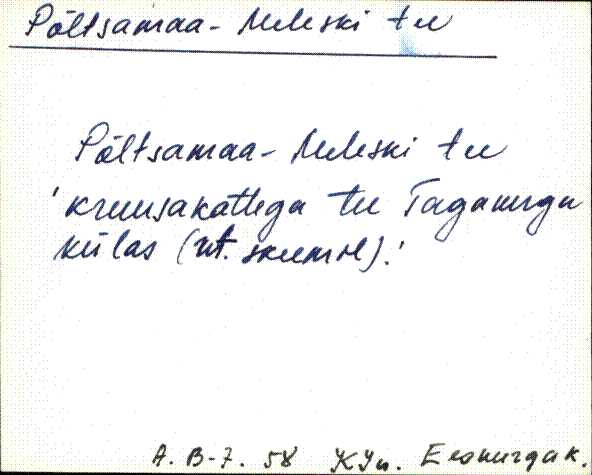 Põltsamaa - Meleski tee
Põltsamaa - Meleski tee
'kruusakattega tee Taganurga
külas (vt. skeemil).'
A. B-7. 58 KJn. Eesnurga k.